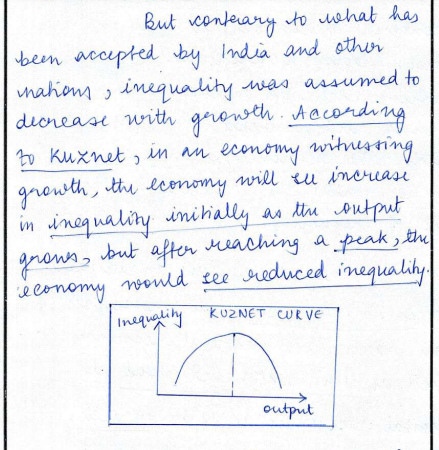 But contrary to what has
been accepted by India and other
nations, inequality was assumed to
decrease with growth. According
to Kuznet, in an economy witnessing
growth, the economy will see increase
in inequality initially as the output
grows, but after reaching a peak, the
economy would see reduced inequality.
Inequality KUZNET CURVE
output